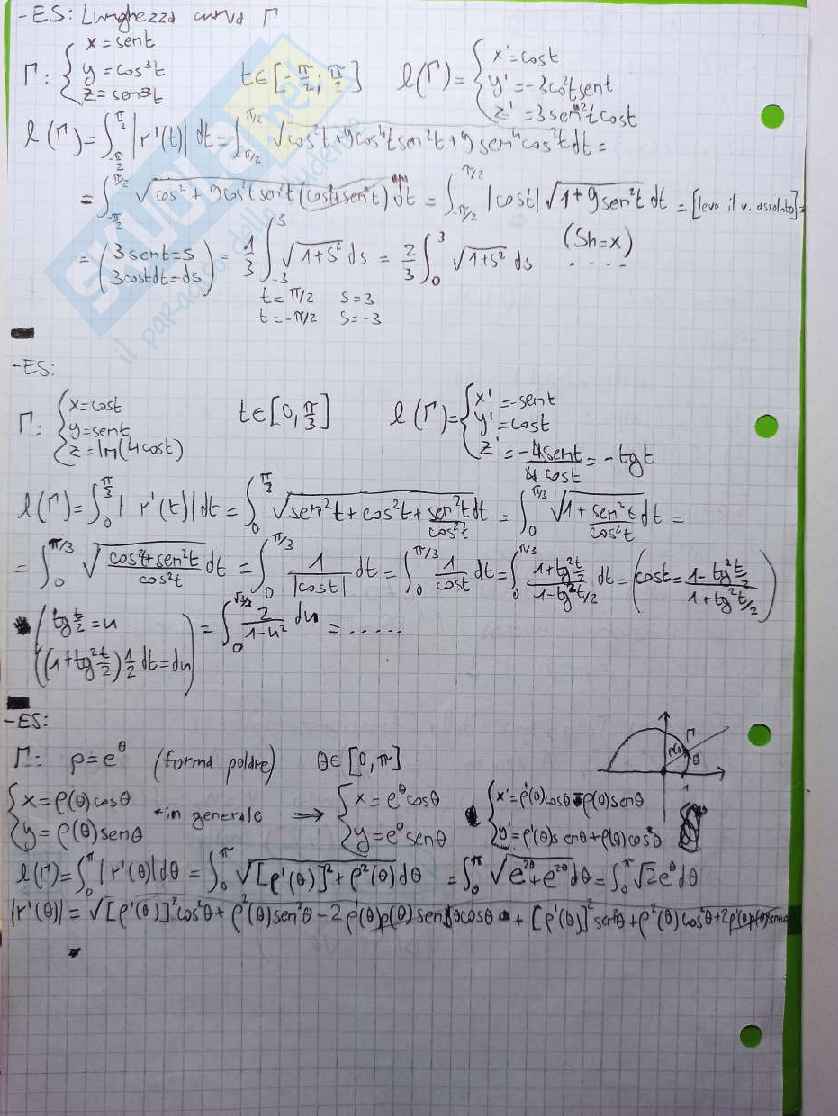 -ES: Lunghezza curva Γ
Γ: { x = sent
y = cos³t
z = sen³t
t∈[-π/2; π/2]
l(Γ) = { x' = cost
y' = -3cos²tsent
z' = 3sen²tcost
l(Γ) = ∫_{-π/2}^{π/2} |r'(t)| dt = ∫_{-π/2}^{π/2} √(cos²t + 9cos⁴tsen²t + 9sen⁴cos²t) dt =
= ∫_{-π/2}^{π/2} √(cos² + 9cos²tsen²t(cos²t+sen²t)) dt = ∫_{-π/2}^{π/2} |cost| √(1+9sen²t) dt = [levo il v. assoluto] =
= (3sent = s
3costdt = ds) = 1/3 ∫_{-3}^{3} √(1+s²) ds = 2/3 ∫_0^3 √(1+s²) ds (Sh=x) .....
t = π/2 s = 3
t = -π/2 s = -3
-ES:
Γ: { x = cost
y = sent
z = ln(4cost)
t∈[0, π/3]
l(Γ) = { x' = -sent
y' = cost
z' = -4sent/4cost = -tgt
l(Γ) = ∫_0^{π/3} |r'(t)| dt = ∫_0^{π/3} √(sen²t + cos²t + sen²t/cos²t) dt = ∫_0^{π/3} √(1 + sen²t/cos²t) dt =
= ∫_0^{π/3} √((cos²t+sen²t)/cos²t) dt = ∫_0^{π/3} 1/|cost| dt = ∫_0^{π/3} 1/cost dt = ∫_0^{π/3} (1+tg²t/2)/(1-tg²t/2) dt = (cost = (1-tg²t/2)/(1+tg²t/2))
(tg t/2 = u
(1+tg²t/2) 1/2 dt = du) = ∫_0^{√3/3} 2/(1-u²) du = ......
-ES:
Γ: ρ = e^θ (forma polare) θ∈[0, π]
{ x = ρ(θ)cosθ
y = ρ(θ)senθ
in generale ⟹ { x = e^θcosθ
y = e^θsenθ
{ x' = ρ'(θ)cosθ - ρ(θ)senθ
y' = ρ'(θ)senθ + ρ(θ)cosθ
l(Γ) = ∫_0^π |r'(θ)| dθ = ∫_0^π √([ρ'(θ)]² + ρ²(θ)) dθ = ∫_0^π √(e^{2θ}+e^{2θ}) dθ = ∫_0^π √2 e^θ dθ
|r'(θ)| = √([ρ'(θ)]²cos²θ + ρ²(θ)sen²θ - 2ρ'(θ)ρ(θ)senθcosθ + [ρ'(θ)]²sen²θ + ρ²(θ)cos²θ + 2ρ'(θ)ρ(θ)
Γ
θ
1
SKUOLA.net